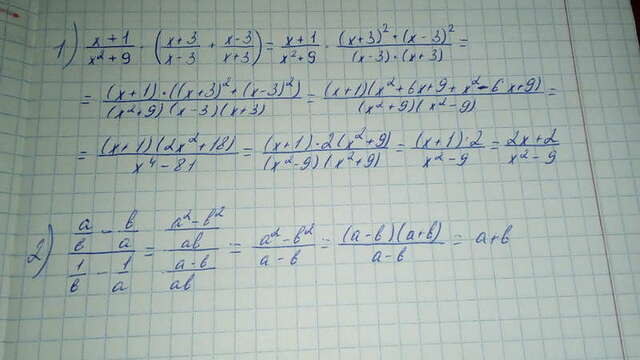 1) \frac{x+1}{x^2+9} \cdot \left(\frac{x+3}{x-3} + \frac{x-3}{x+3}\right) = \frac{x+1}{x^2+9} \cdot \frac{(x+3)^2+(x-3)^2}{(x-3)\cdot(x+3)} =
= \frac{(x+1)\cdot((x+3)^2+(x-3)^2)}{(x^2+9)(x-3)(x+3)} = \frac{(x+1)(x^2+6x+9+x^2-6x+9)}{(x^2+9)(x^2-9)} =
= \frac{(x+1)(2x^2+18)}{x^4-81} = \frac{(x+1)\cdot 2(x^2+9)}{(x^2-9)(x^2+9)} = \frac{(x+1)\cdot 2}{x^2-9} = \frac{2x+2}{x^2-9}
2) \frac{\frac{a}{b} - \frac{b}{a}}{\frac{1}{b} - \frac{1}{a}} = \frac{\frac{a^2-b^2}{ab}}{\frac{a-b}{ab}} = \frac{a^2-b^2}{a-b} = \frac{(a-b)(a+b)}{a-b} = a+b